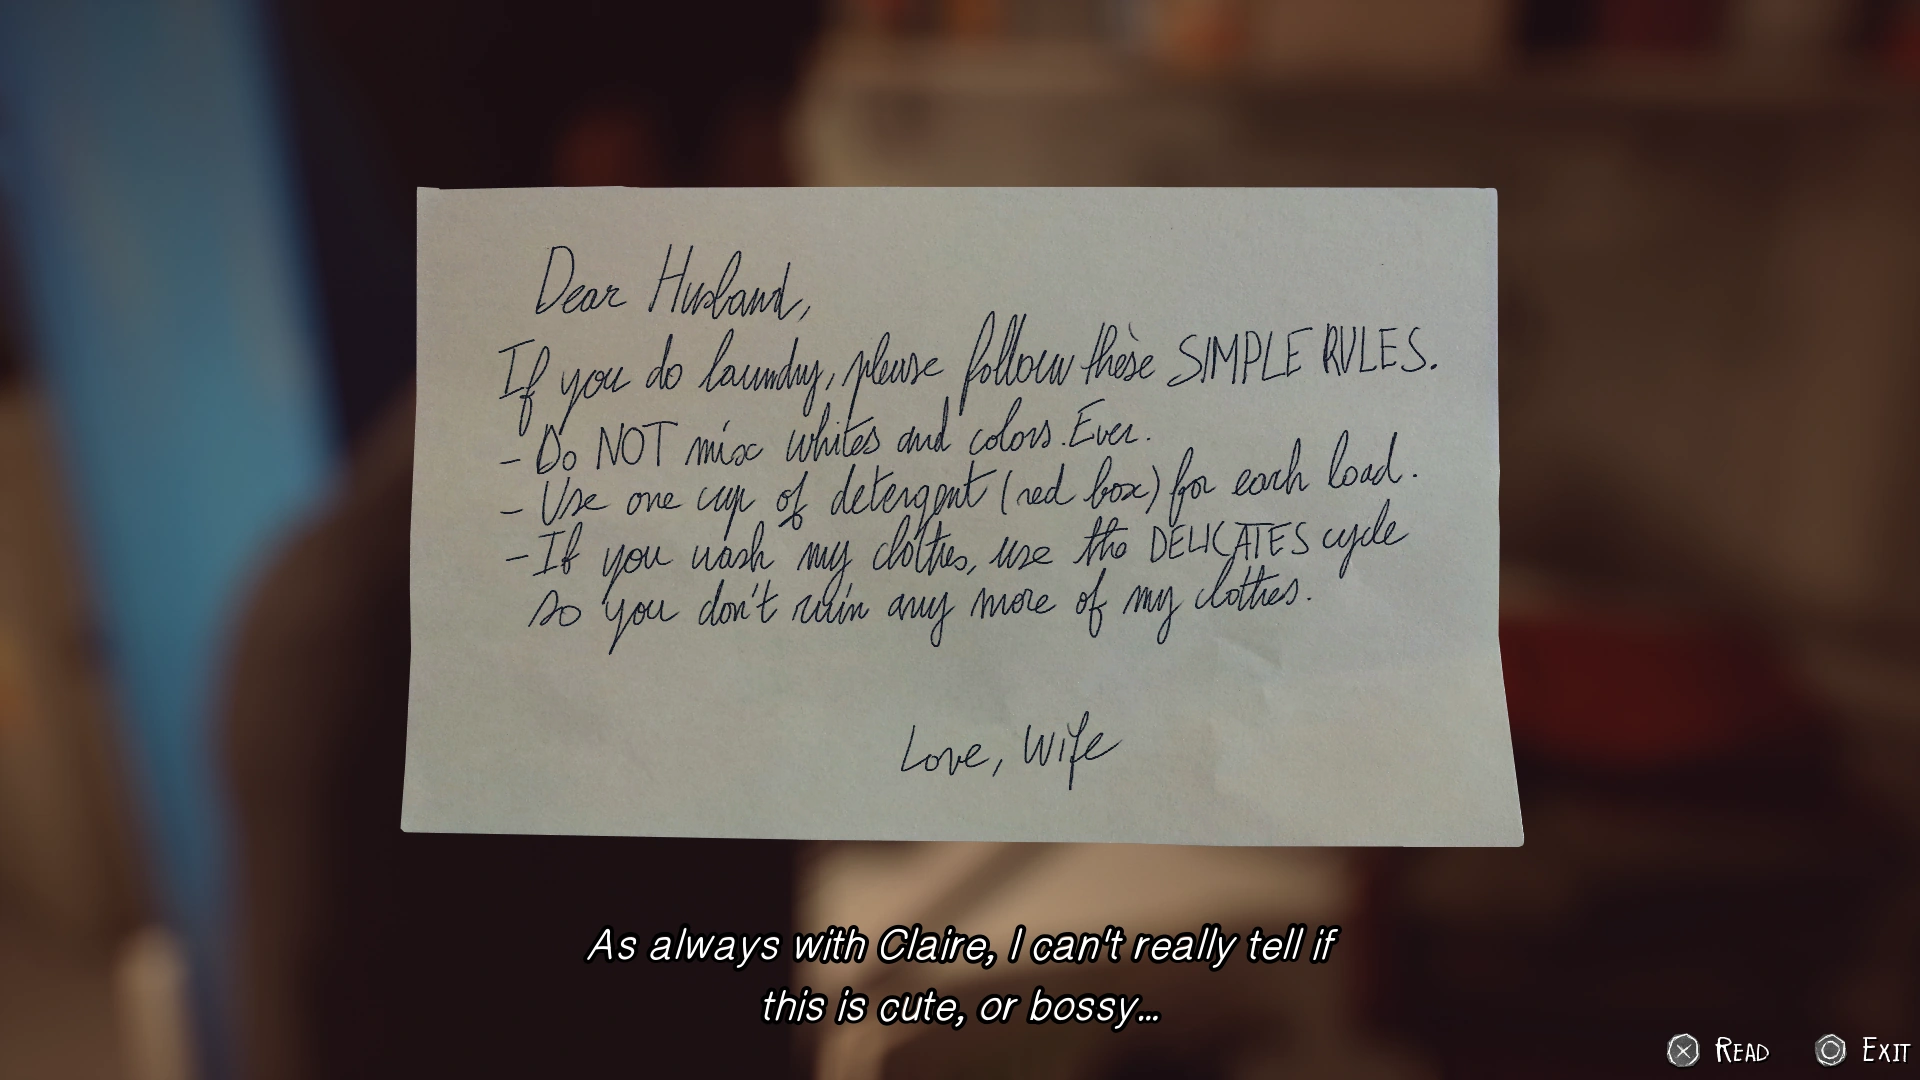 Dear Husband,
If you do laundry, please follow these SIMPLE RULES.
- Do NOT mix whites and colors. Ever.
- Use one cup of detergent (red box) for each load.
- If you wash my clothes, use the DELICATES cycle
so you don't ruin any more of my clothes.
Love, Wife
As always with Claire, I can't really tell if
this is cute, or bossy...
READ EXIT